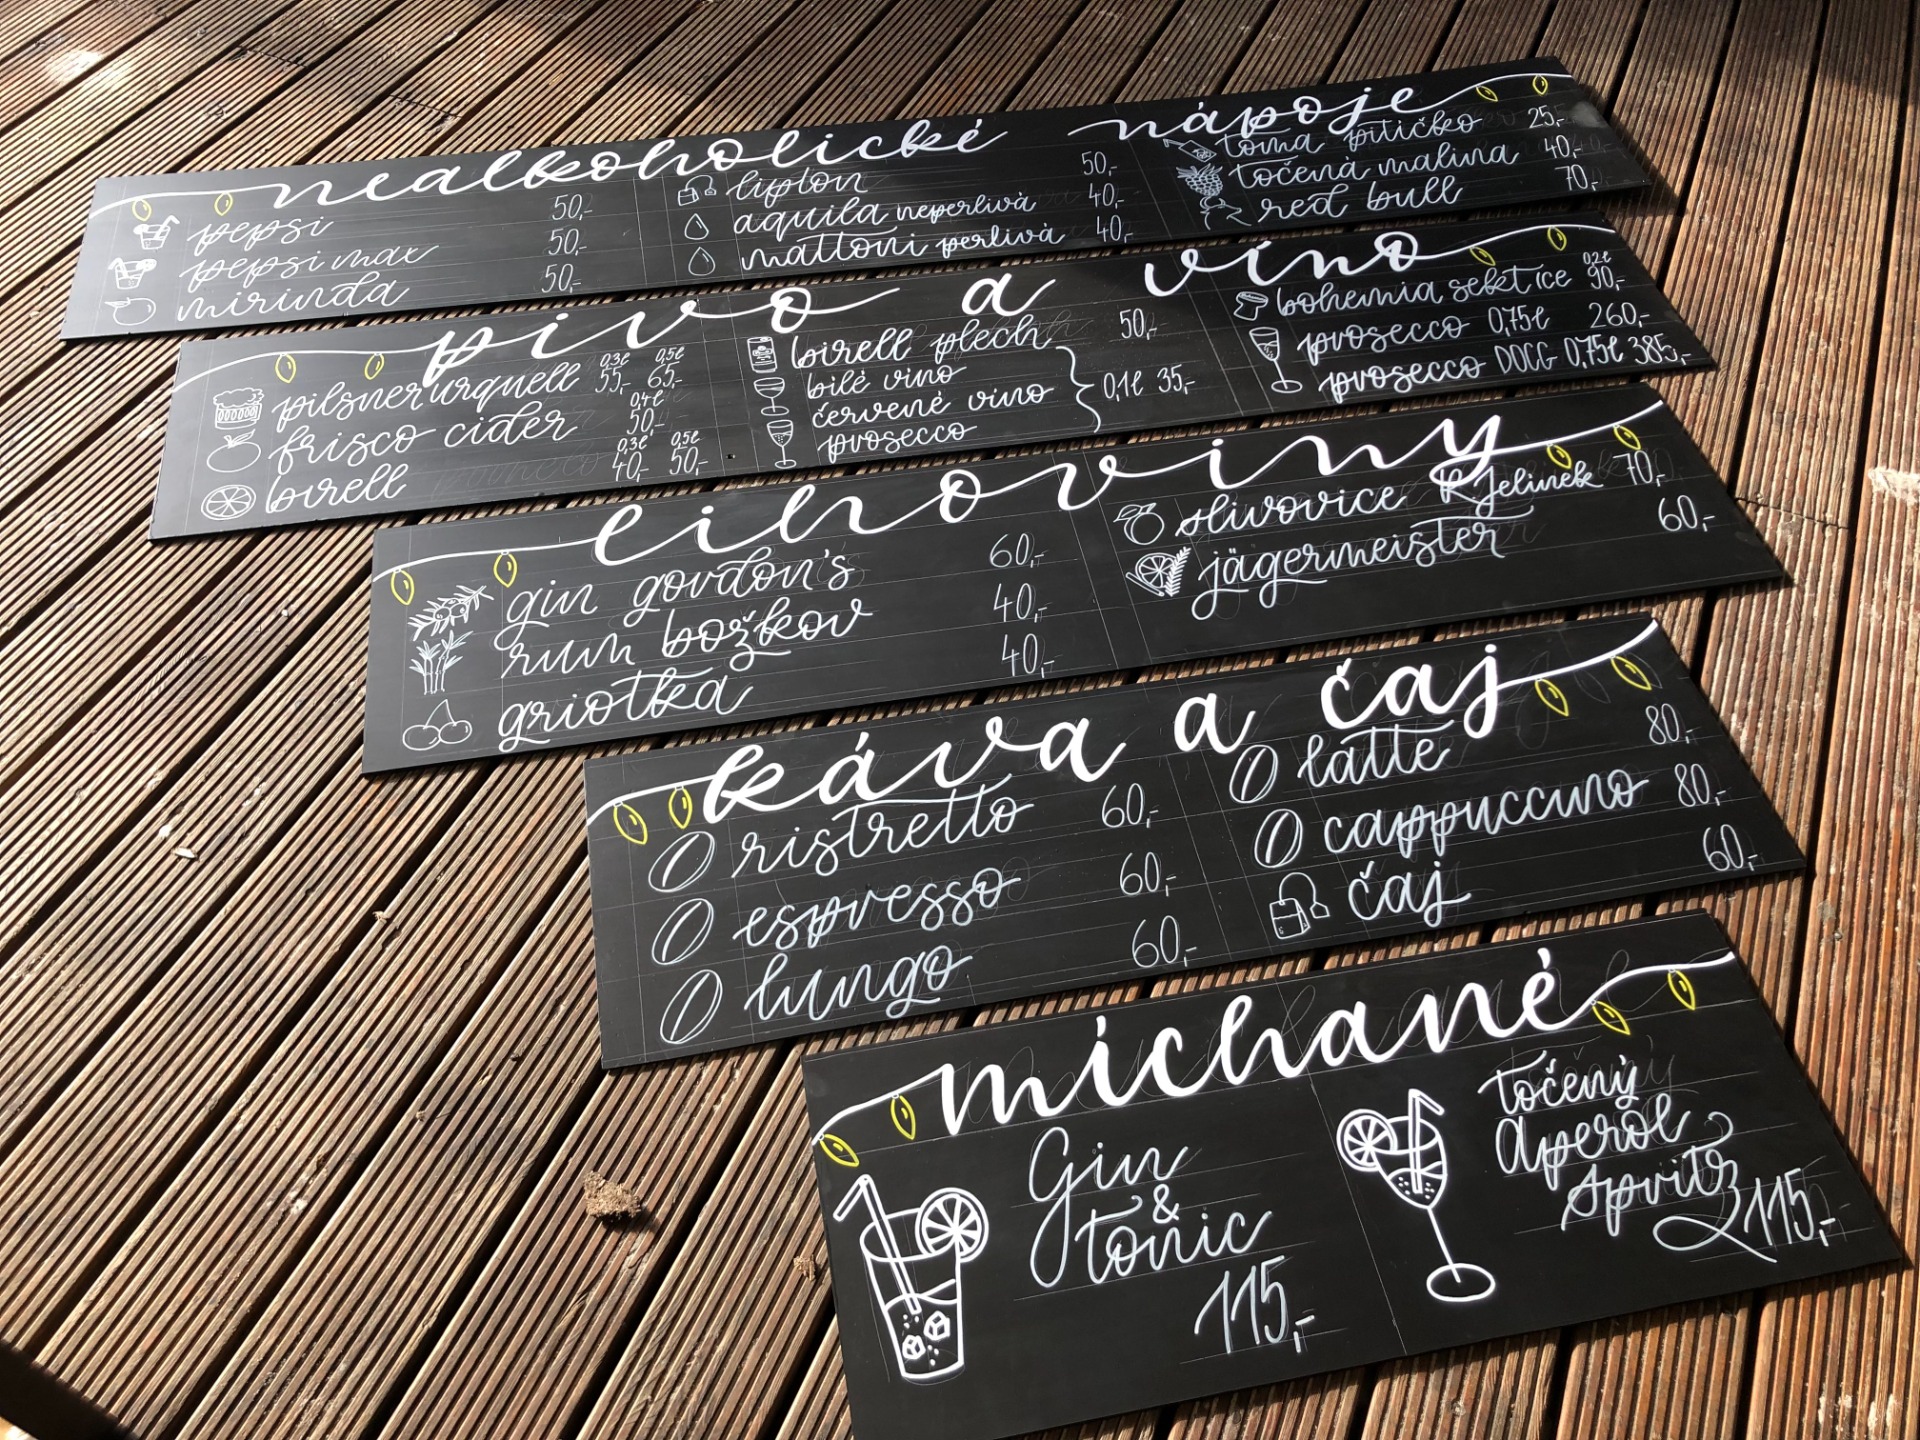 nealkoholické nápoje
pepsi 50,-
pepsi max 50,-
mirinda 50,-
lipton 50,-
aquila neperlivá 40,-
mattoni perlivá 40,-
toma pitíčko 25,-
točená malina 40,-
red bull 70,-
pivo a víno
0,3l 0,5l
pilsner urquell 55,- 65,-
0,4l
frisco cider 50,-
0,3l 0,5l
birell 40,- 50,-
birell plech 50,-
bílé víno
červené víno 0,1l 35,-
prosecco
0,2l
bohemia sekt ice 90,-
prosecco 0,75l 260,-
prosecco DOCG 0,75l 385,-
lihoviny
gin gordon's 60,-
rum božkov 40,-
griotka 40,-
slivovice R. Jelinek 70,-
jägermeister 60,-
káva a čaj
ristretto 60,-
espresso 60,-
lungo 60,-
latte 80,-
cappuccino 80,-
čaj 60,-
míchané
Gin
&
tonic
115,-
točený
Aperol
Spritz
115,-